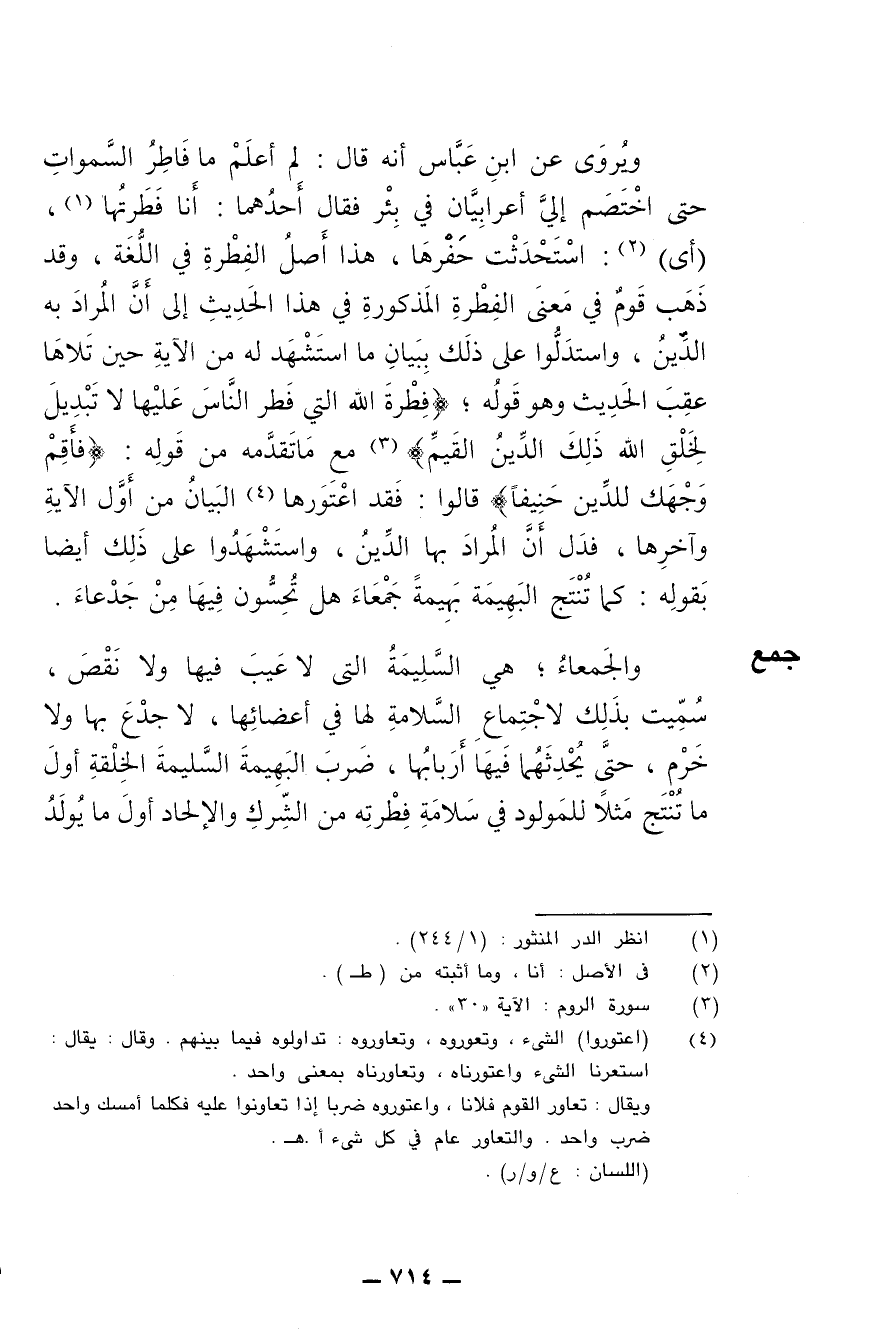 ويُروَى عن ابنِ عَبَّاس أنه قال : لم أعلَمْ ما فَاطِرُ السَّمواتِ
حتى اخْتَصَم إليَّ أعرابِيَّان في بِئْر فقال أَحدُهما : أَنا فَطَرتُها (١) ،
(أى) (٢) : اسْتَحْدَثْت حَفْرهَا ، هذا أَصلُ الفِطْرةِ في اللُّغَة ، وقد
ذَهَب قَومٌ في مَعنَى الفِطْرةِ المَذكورةِ في هذا الحَدِيثِ إلى أَنَّ المُرادَ به
الدِّينُ ، واستدَلُّوا على ذلَك بِبَيانِ ما استَشْهَد له من الآيةِ حين تَلاهَا
عقِبَ الحَدِيث وهو قَولُه ؛ ﴿فِطْرةَ الله التي فَطر النَّاسَ عَلَيْها لا تَبْدِيلَ
لِخَلْقِ الله ذَلِكَ الدِّينُ القَيمِّ﴾ (٣) مع مَاتَقدَّمه من قَولِه : ﴿فأَقِمْ
وَجْهَك للدِّين حَنِيفاً﴾ قالوا : فَقد اعْتَورها (٤) البَيانُ من أوَّل الآيةِ
وآخرِها ، فدَل أنَّ المُرادَ بها الدِّينُ ، واستَشْهَدُوا على ذَلِك أيضا
بَقولِه : كما تُنْتَج البَهِيمَة بَهِيمةً جَمْعَاءَ هل تُحِسُّون فِيهَا مِنْ جَدْعاءَ .
جمع
والجَمعاءُ ؛ هي السَّلِيمَةُ التى لا عَيبَ فيها ولا نَقْصَ ،
سُمِّيت بذَلِك لاجْتِماعِ السَّلامةِ لها في أعضائِها ، لا جدْعَ بها ولا
خَرْم ، حتىَّ يُحْدثَهُما فَيهَا أَربابُها ، ضَربَ البَهِيمةَ السَّليمةَ الخِلْقةِ أولَ
ما تُنْتَج مَثلاً للمَولود في سَلامَةِ فِطْرتِه من الشِّركِ والإلحاد أولَ ما يُولَدُ
(١) انظر الدر المنثور : (٢٤٤/١) .
(٢) فى الأصل : أنا ، وما أثبته من ( طـ ) .
(٣) سورة الروم : الآية «٣٠» .
(٤) (اعتوروا) الشىء ، وتعوروه ، وتعاوروه : تداولوه فيما بينهم . وقال : يقال :
استعرنا الشىء واعتورناه ، وتعاورناه بمعنى واحد .
ويقال : تعاور القوم فلانا ، واعتوروه ضربا إذا تعاونوا عليه فكلما أمسك واحد
ضرب واحد . والتعاور عام في كل شىء أ .هـ .
(اللسان : ع/و/ر) .
— ٧١٤ —